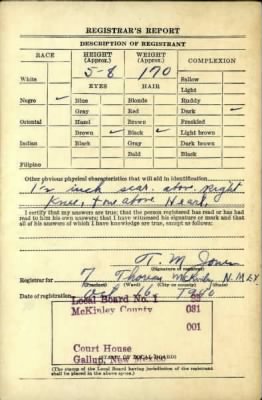 REGISTRAR'S REPORT
DESCRIPTION OF REGISTRANT
RACE HEIGHT (Approx.) WEIGHT (Approx.) COMPLEXION
5-8 170
White Sallow
EYES HAIR Light
Negro ✓ Blue Blonde Ruddy
Gray Red Dark ✓
Oriental Hazel Brown Freckled
Brown ✓ Black ✓ Light brown
Indian Black Gray Dark brown
Bald Black
Filipino
Other obvious physical characteristics that will aid in identification
1½ inch scar above right
Knee, + one above Heart
I certify that my answers are true; that the person registered has read or has had
read to him his own answers; that I have witnessed his signature or mark and that
all of his answers of which I have knowledge are true, except as follows:
T. M. Jones
(Signature of registrar)
Registrar for 7 Thoreau McKinley N. MEX
(Precinct) (Ward) (City or county) (State)
Date of registration Oct 16 1940
Local Board No. 1
McKinley County 031
001
Court House
Gallup, New Mexico
(STAMP OF LOCAL BOARD)
(The stamp of the Local Board having jurisdiction of the registrant
shall be placed in the above space.)